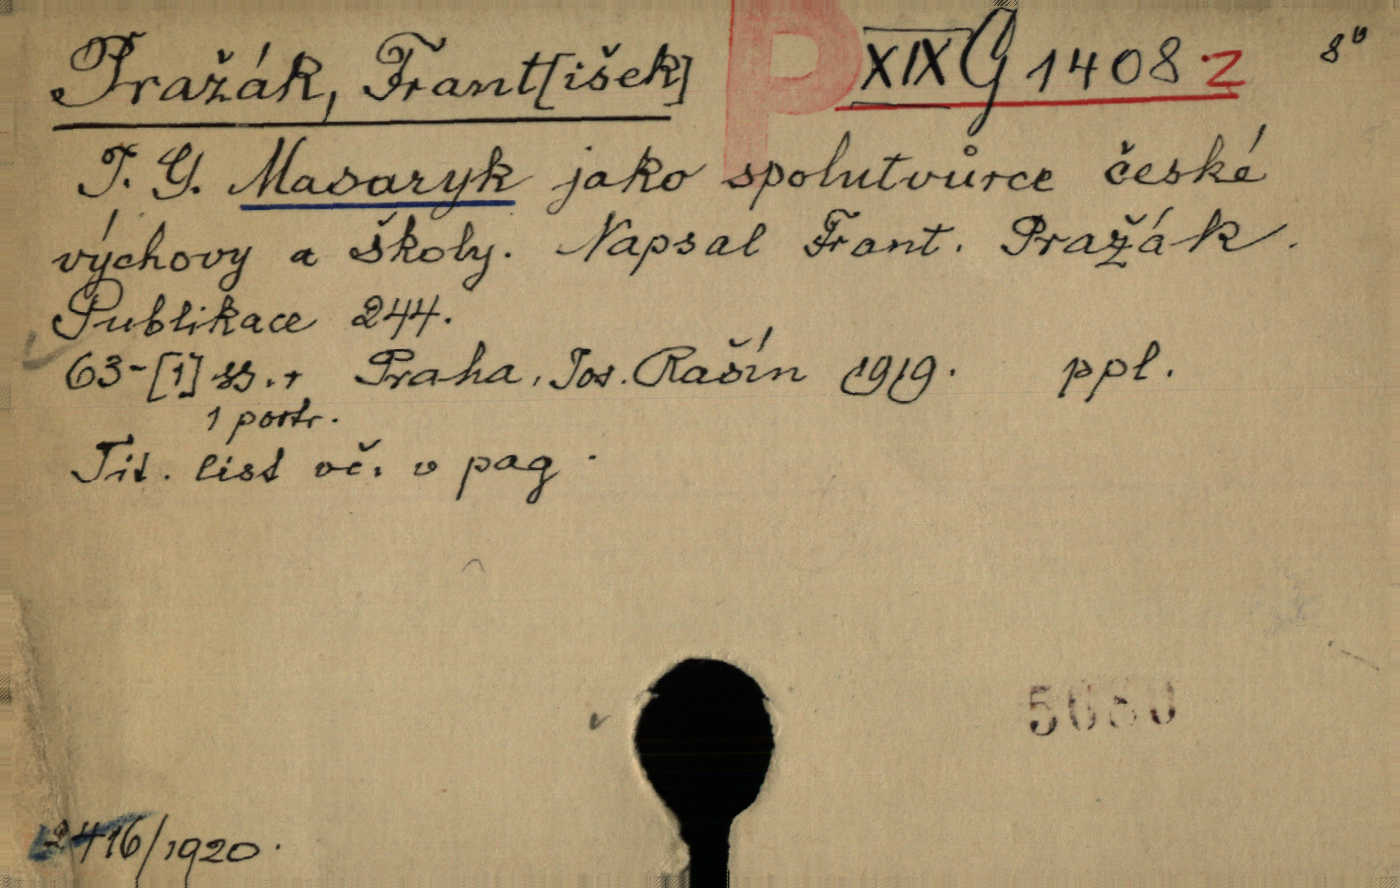 Pražák, Frant[išek]
P XIX G 1408 z 8°
T. G. Masaryk jako spolutvůrce české
výchovy a školy. Napsal Frant. Pražák.
Publikace 244.
63-[1] ss. + Praha, Jos. Rašín 1919. ppl.
1 portr.
Tit. list vč. v pag.
2416/1920.